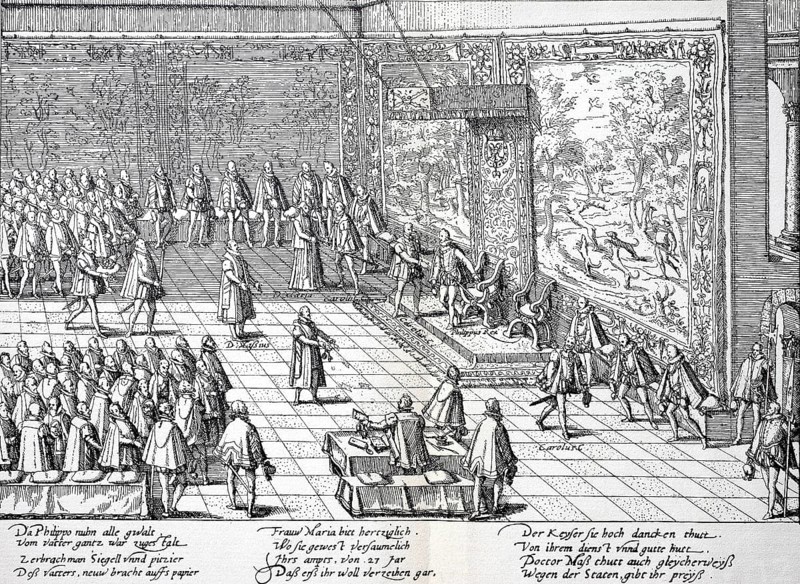 D. Maria
Carolus
D. Masius
Carolus. C
Da Philippo nuhn alle gwalt
Vom vatter gantz war zugestalt
Zerbrach man Siegell vnnd pitzier
Deß vatters, neuw bracht auffs papier
Frauw Maria bitt hertziglich.
Wo sie gewest versaumelich
Jhrs ampts, von 27 Jar
Daß ehs ihr woll verzeihen gar.
Der Keyser sie hoch dancken thutt.
Von ihrem dienst vnnd gutte hutt.
Doctor Maß thutt auch gleycherweyß
Wegen der Staten, gibt ihr preyß